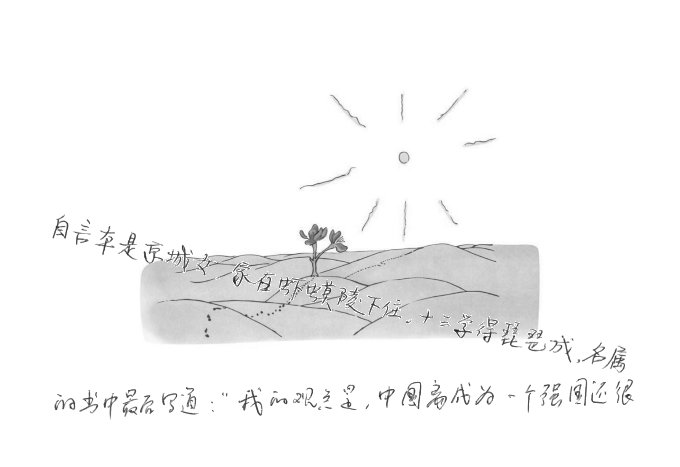 自言本是京城女,家在虾蟆陵下住。十三学得琵琶成,名属
的书中最后写道:“我的观点是,中国离成为一个强国还很